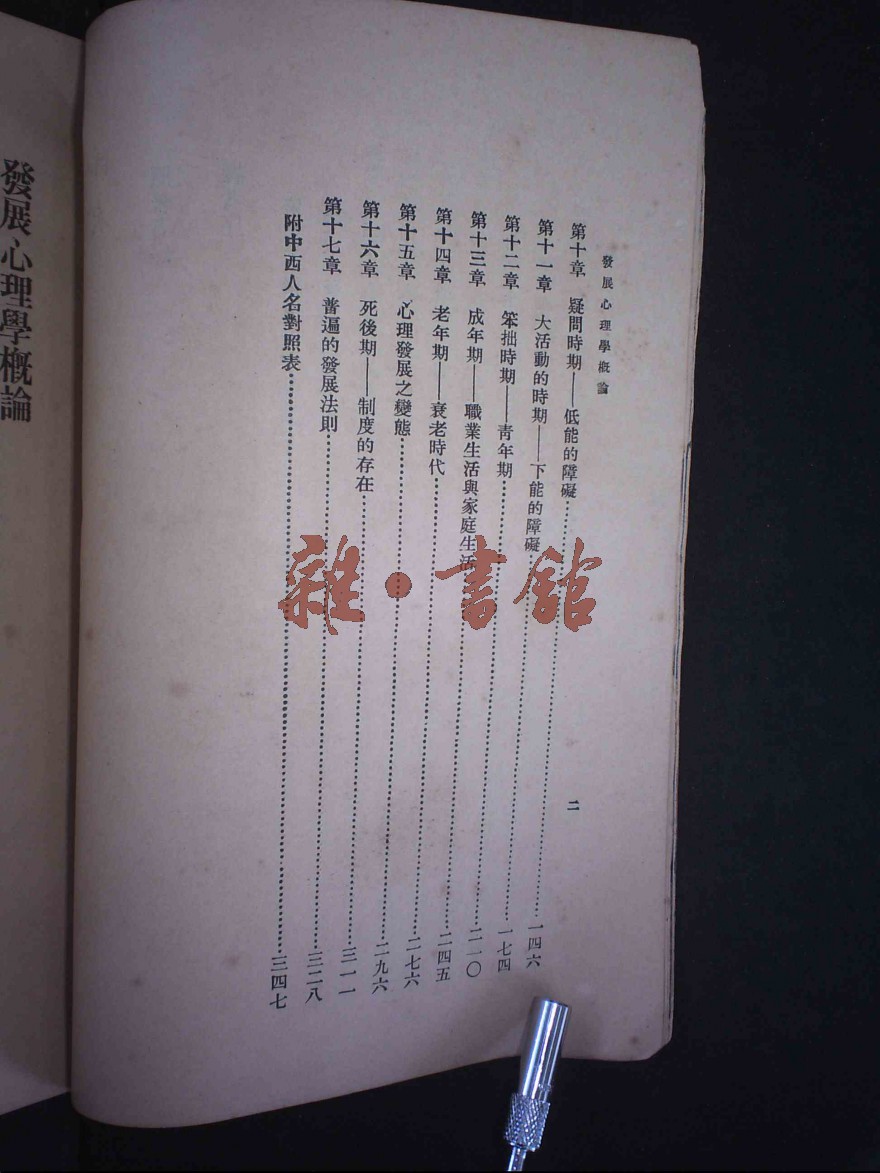 發展心理學概論
二
第十章　疑問時期——低能的障礙……一四六
第十一章　大活動的時期——下能的障礙……一七四
第十二章　笨拙時期——青年期……二一〇
第十三章　成年期——職業生活與家庭生活……二四五
第十四章　老年期——衰老時代……二七六
第十五章　心理發展之變態……二九六
第十六章　死後期——制度的存在……三一一
第十七章　普遍的發展法則……三二八
附中西人名對照表……三四七
發展心理學概論
雜·書館